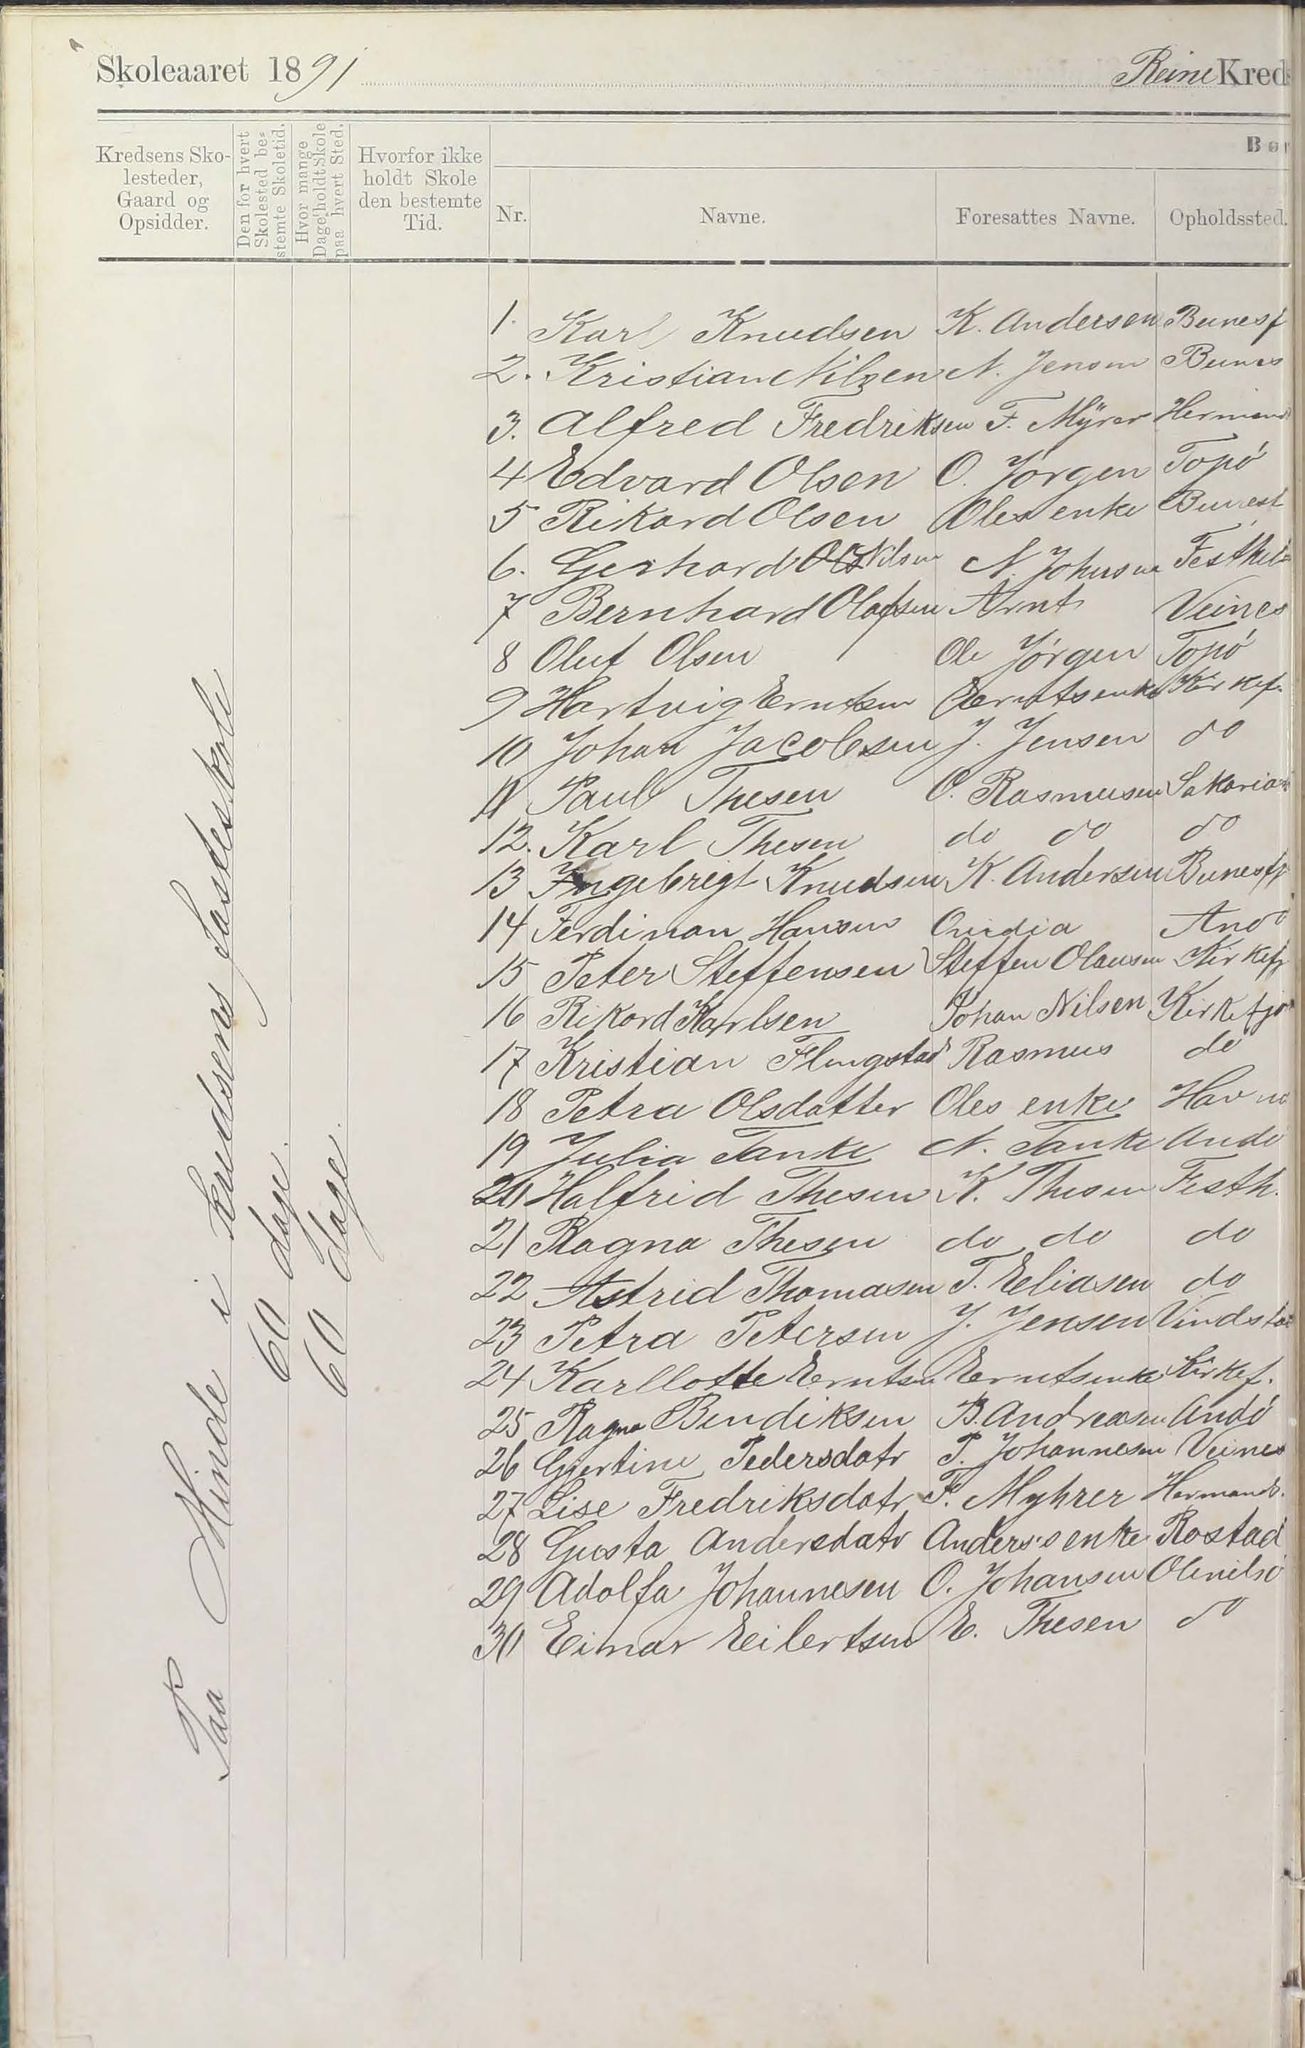 Skoleaaret 1891 Reine Kreds
Kredsens Sko-
lesteder,
Gaard og
Opsidder.
Den for hvert
Skolested be-
stemte Skoletid.
Hvor mange
Dage holdt Skole
paa hvert Sted.
Hvorfor ikke
holdt Skole
den bestemte
Tid.
Bør
Nr. Navne. Foresattes Navne. Opholdssted.
Paa Minde i kredsens fasteskole
60 dage.
60 dage.
1. Karl Knudsen K. Andersen Bunesf
2. Kristian Nilsen N. Jensen Bunes
3. Alfred Fredriksen F. Myrer Hermand
4 Edvard Olsen O. Jørgen Topø
5 Rikard Olsen Oles enke Bunesf
6. Gerhard Nilsen N. Johnsen Festhel
7 Bernhard Olafsen Arnt Veines
8 Oluf Olsen Ole Jørgen Topø
9 Hertvig Erntsen Erntsenke Kirkef.
10 Johan Jacobsen J. Jensen do
11 Paul Thesen O. Rasmusen Sakaria
12. Karl Thesen do do do
13 Ingebrigt Knudsen K. Andersen Bunesfj
14 Ferdinan Hansen Ovidia Andø
15 Peter Steffensen Steffen Olausen Kirkefj
16 Rikord Karlsen Johan Nilsen Kirkefjo
17 Kristian Flingstad Rasmus do
18 Petra Olsdatter Oles enke Havn
19 Julia Tanke N. Tanke Andø
20 Halfrid Thesen K. Thesen Festh.
21 Ragna Thesen do do do
22 Astrid Thomasen T. Eeliasen do
23 Petra Petersen J. Jensen Vindsta
24 Karllotte Erntsen Erntsenke Kirkef.
25 Ragna Bendiksen B. Andreasen Andø
26 Gjertine Pedersdatr P. Johannesen Veines
27 Lise Fredriksdatr F. Myhrer Hermands.
28 Gusta Andersdatr Anders's enke Rostad
29 Adolfa Johannesen O. Johansen Olenilsø
30 Einar Eilertsen E. Thesen do